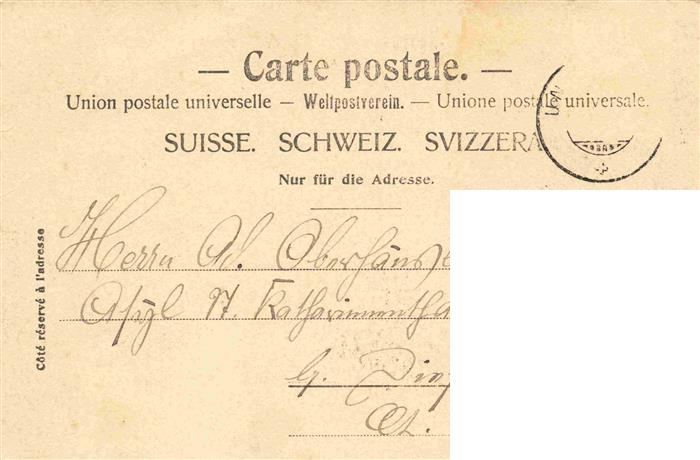 — Carte postale. —
Union postale universelle — Weltpostverein. — Unione postale universale.
SUISSE. SCHWEIZ. SVIZZERA
Nur für die Adresse.
Côté réservé à l'adresse
Herrn Ad.
Asyl St.
b.
Ct.